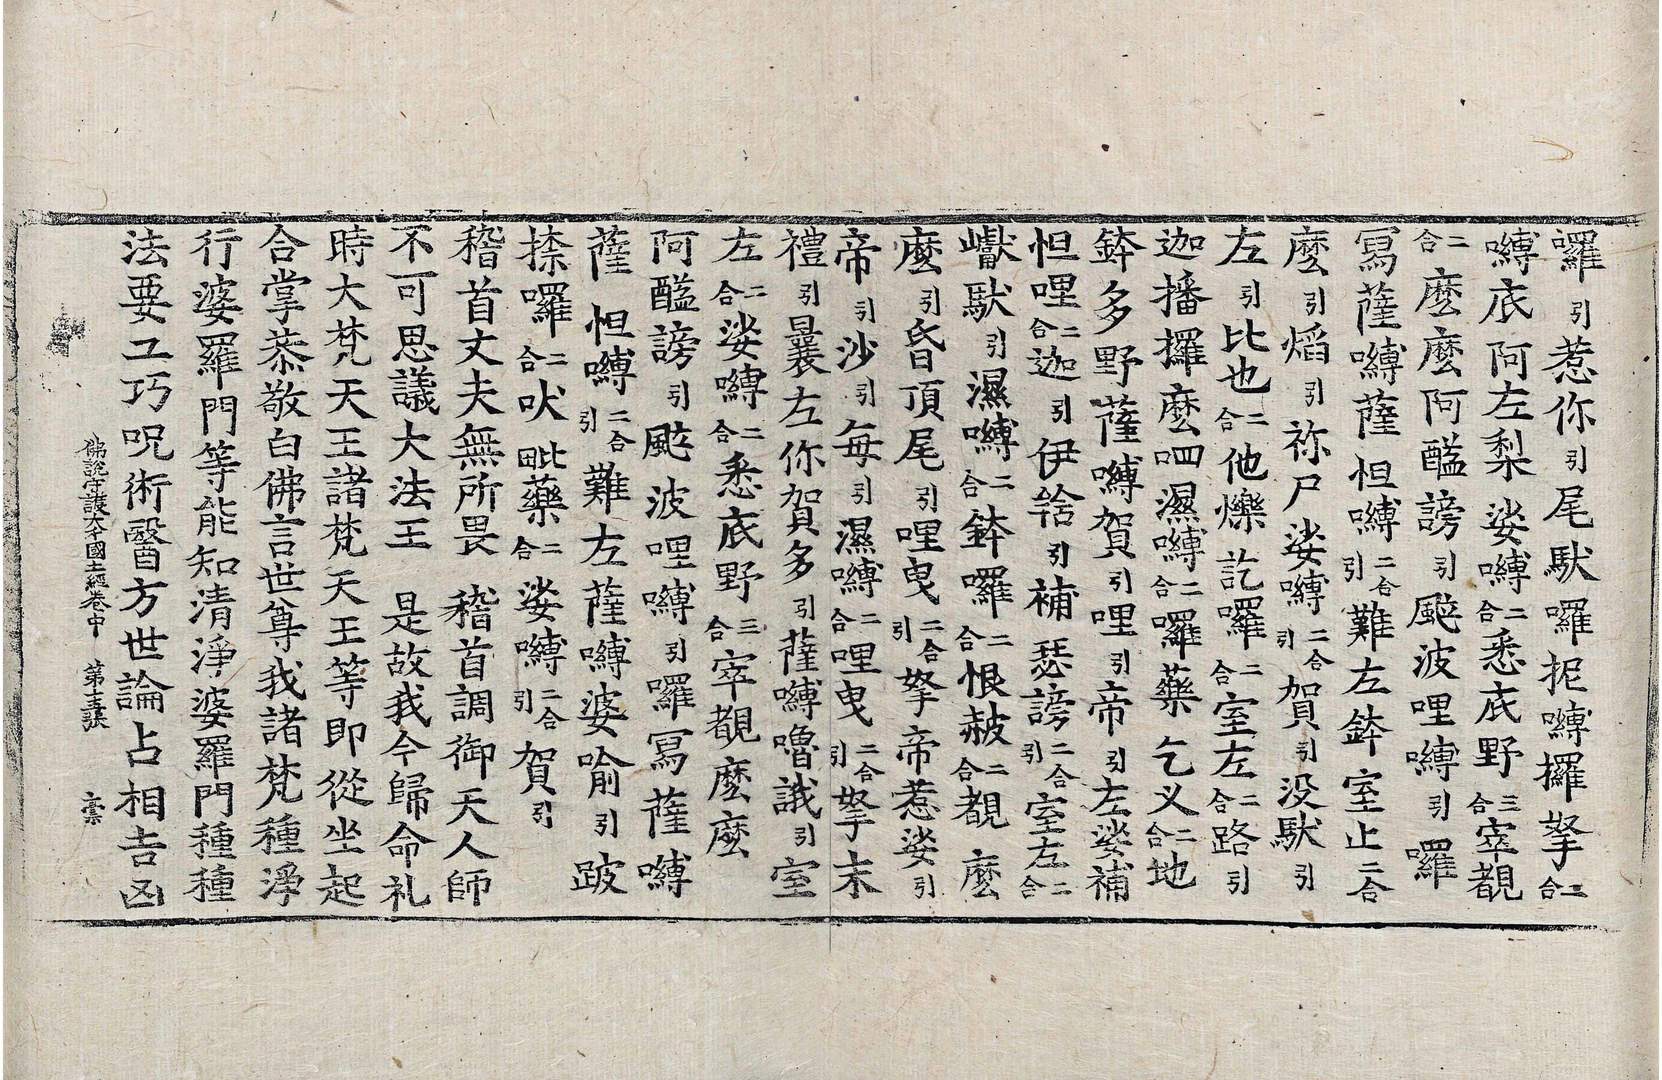 囉引惹你引尾馱囉抳嚩攞拏二合
嚩底阿左梨娑嚩二合悉底野三合窣覩
二合麼麼阿醯謗引颰波哩嚩引囉
寫薩嚩薩怛嚩二合引難左鉢室止二合
麼引焰引祢尸娑嚩二合引賀引没馱引
左引比也二合他爍訖囉二合室左二合路引
迦播攞麼呬濕嚩二合囉藥乞义二合地
鉢多野薩嚩賀引哩引帝引左娑補
怛哩二合迦引伊舍引補瑟謗二合引室左二合
巘馱引濕嚩二合鉢囉二合恨赦二合覩麼
麼引昏頂尾引哩曳二合引拏帝惹娑引
帝引沙引每引濕嚩二合哩曳二合引拏末
禮引曩左你賀多引薩嚩嚕誐引室
左二合娑嚩二合悉底野三合窣覩麼麼
阿醯謗引颰波哩嚩引囉寫薩嚩
薩怛嚩二合引難左薩嚩婆喻引跛
捺囉二合吠毗藥二合娑嚩二合引賀引
稽首丈夫無所畏 稽首調御天人師
不可思議大法王 是故我今歸命礼
時大梵天王諸梵天王等即從坐起
合掌恭敬白佛言世尊我諸梵種淨
行婆羅門等能知清淨婆羅門種種
法要工巧呪術醫方世論占相吉凶
佛說守護大千國土經卷中 第十五張 稾